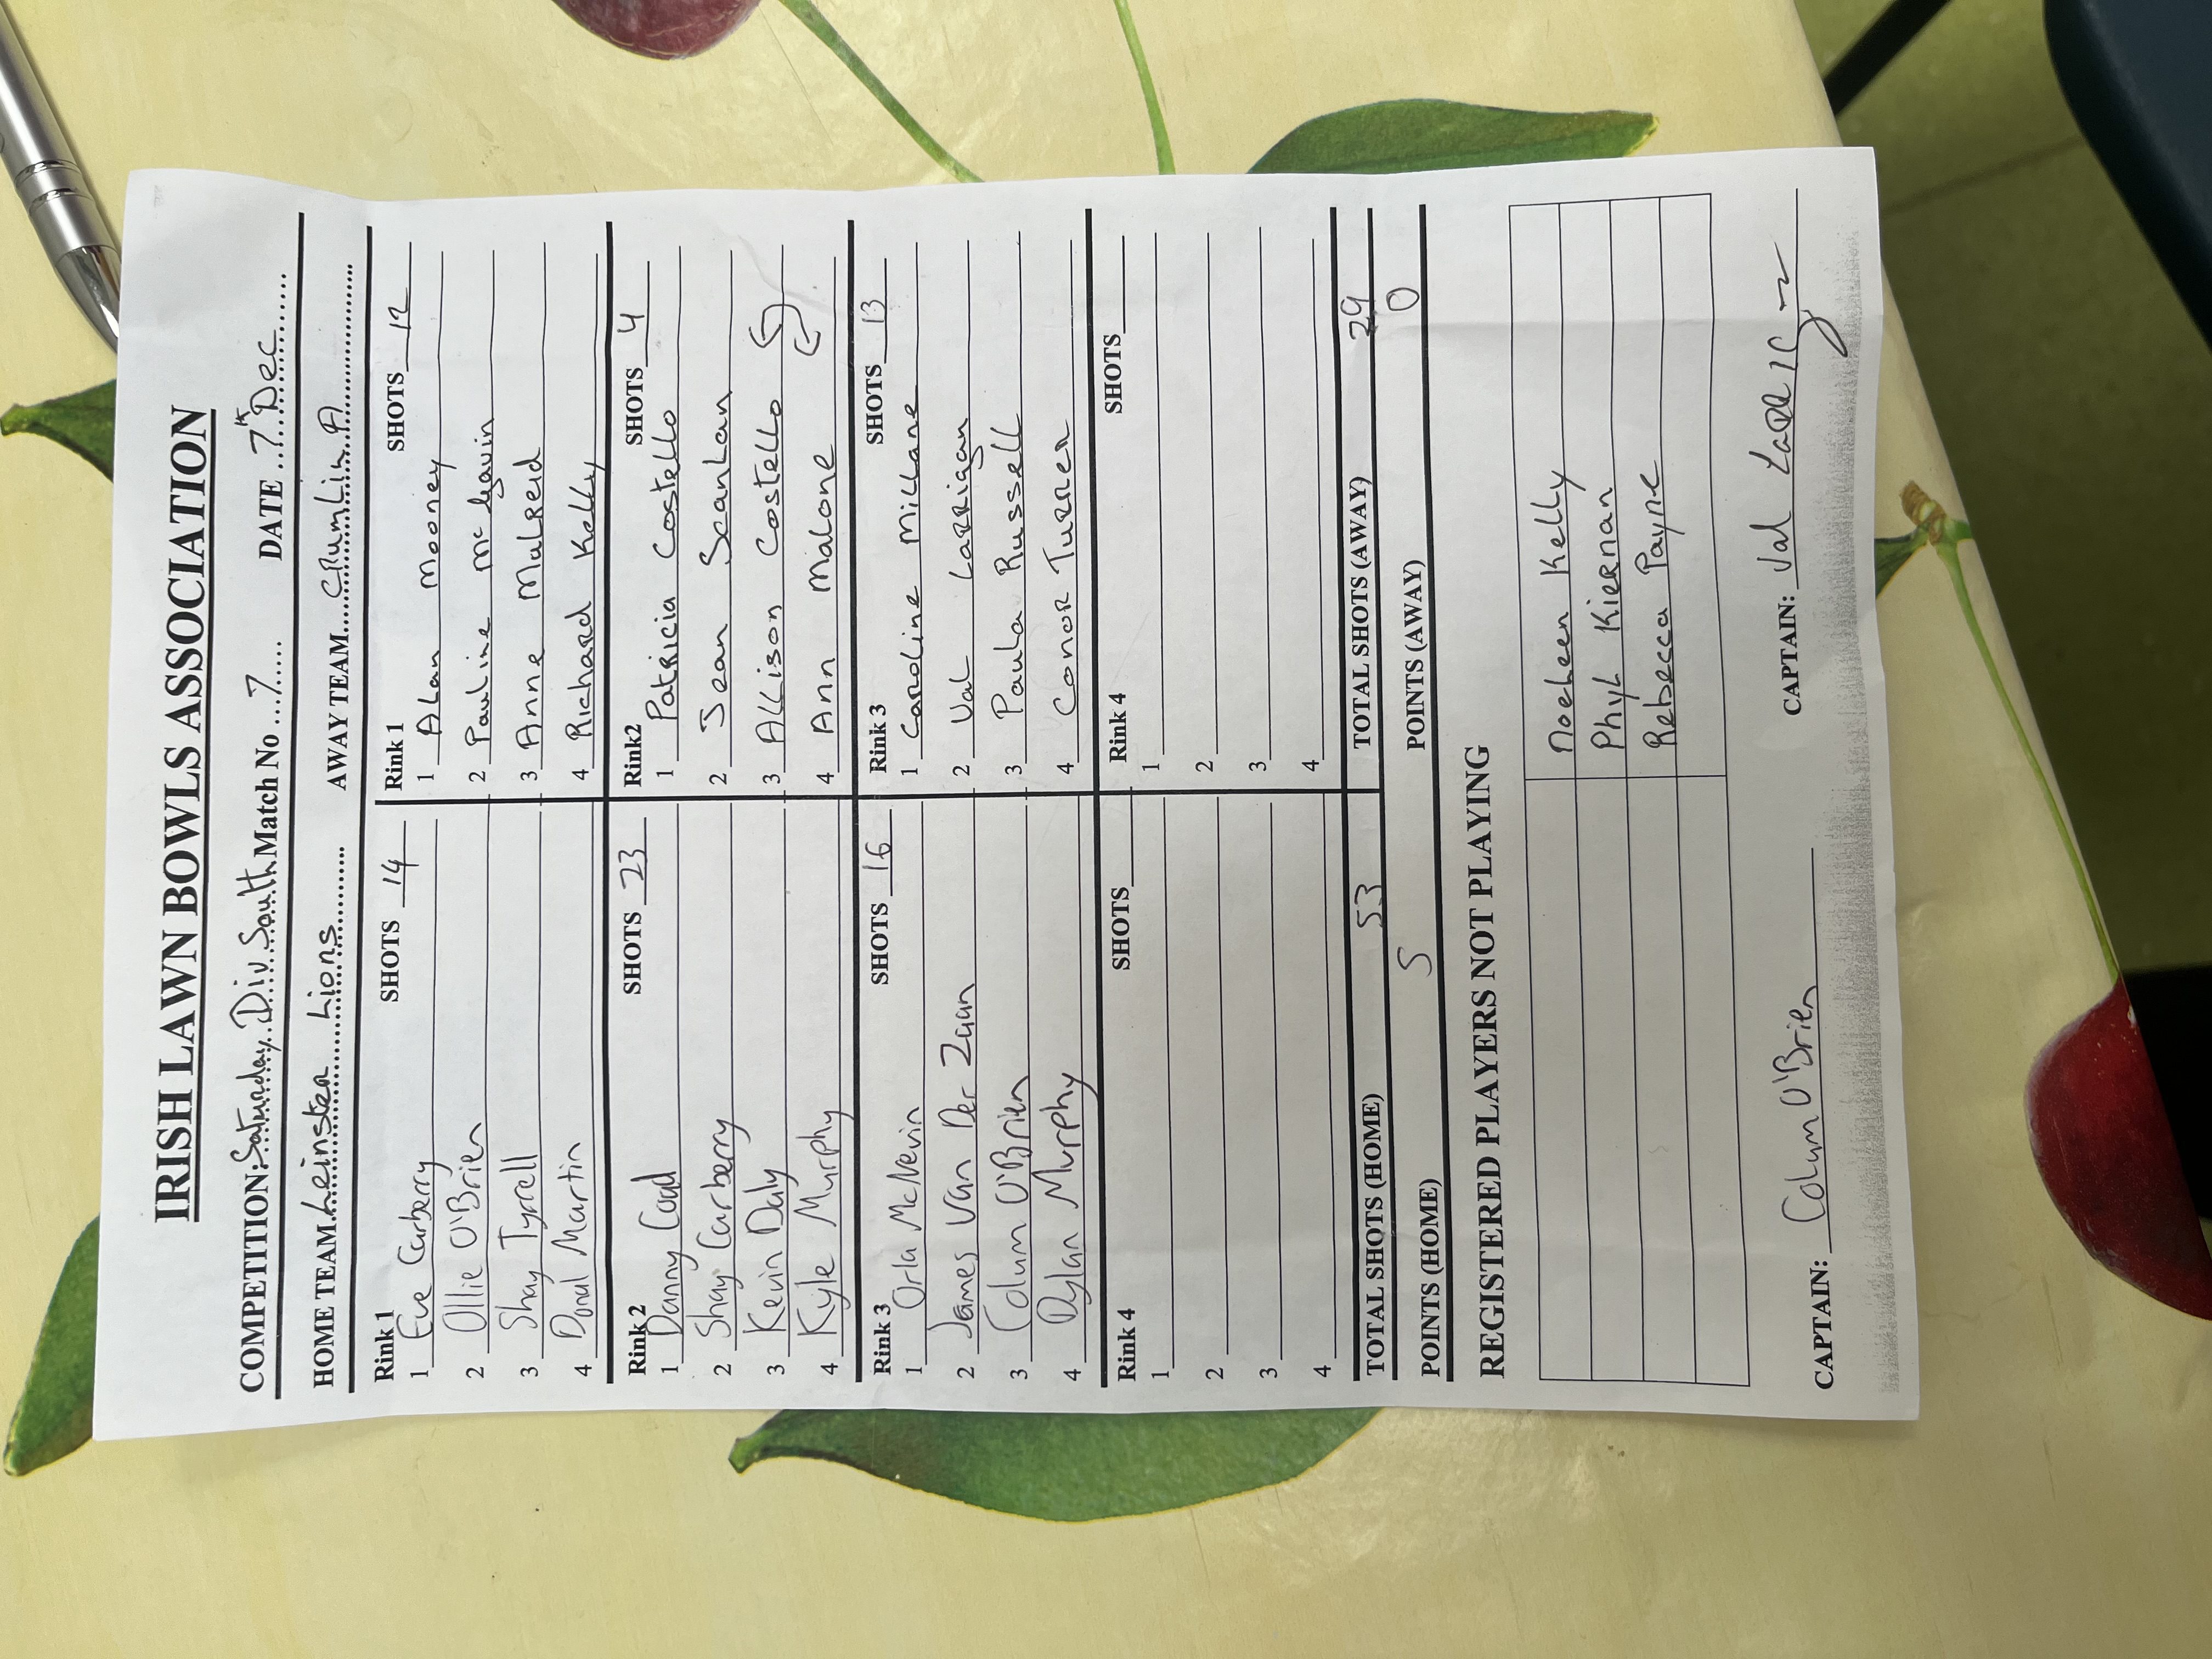 IRISH LAWN BOWLS ASSOCIATION
COMPETITION: Saturday Div South Match No 7 DATE 7th Dec
HOME TEAM Leinster Lions AWAY TEAM CRumlin A
Rink 1 SHOTS 14 Rink 1 SHOTS 12
1 Eve Carberry 1 Alan Mooney
2 Ollie O'Brien 2 Pauline McGavin
3 Shay Tyrrell 3 Anne Mulreid
4 Donal Martin 4 Richard Kelly
Rink 2 SHOTS 23 Rink2 SHOTS 4
1 Danny Coad 1 Patricia Costello
2 Shay Carberry 2 Jean Scanlan
3 Kevin Daly 3 Allison Costello
4 Kyle Murphy 4 Ann Malone
Rink 3 SHOTS 16 Rink 3 SHOTS 13
1 Orla McNevin 1 Caroline Millane
2 James Van Der Zaan 2 Val Larrigan
3 Colum O'Brien 3 Paula Russell
4 Dylan Murphy 4 Conor Turner
Rink 4 SHOTS Rink 4 SHOTS
1 1
2 2
3 3
4 4
TOTAL SHOTS (HOME) 53 TOTAL SHOTS (AWAY) 29
POINTS (HOME) 5 POINTS (AWAY) 0
REGISTERED PLAYERS NOT PLAYING
Noeleen Kelly
Phyl Kiernan
Rebecca Payne
CAPTAIN: Colum O'Brien CAPTAIN: Val